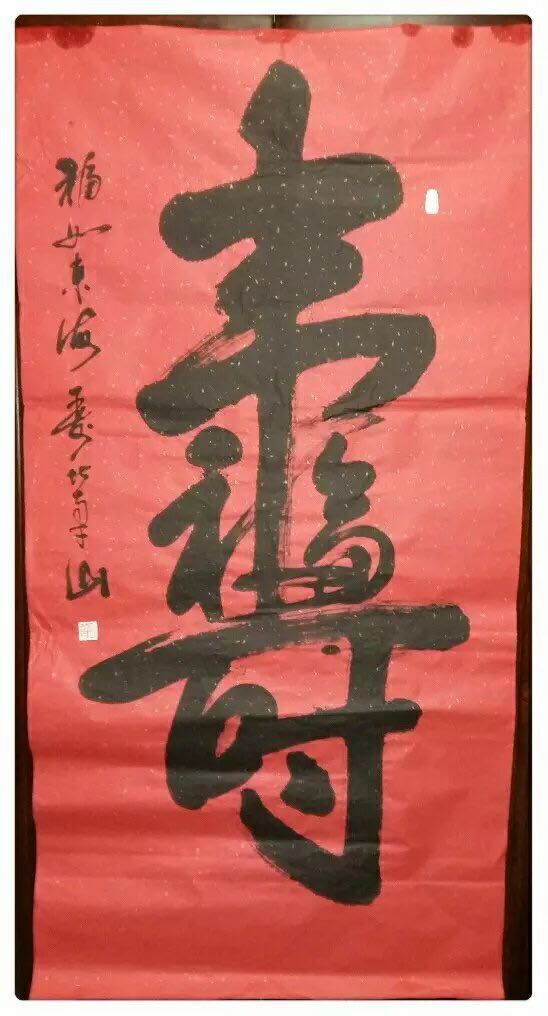 壽
福
福如東海壽比南山